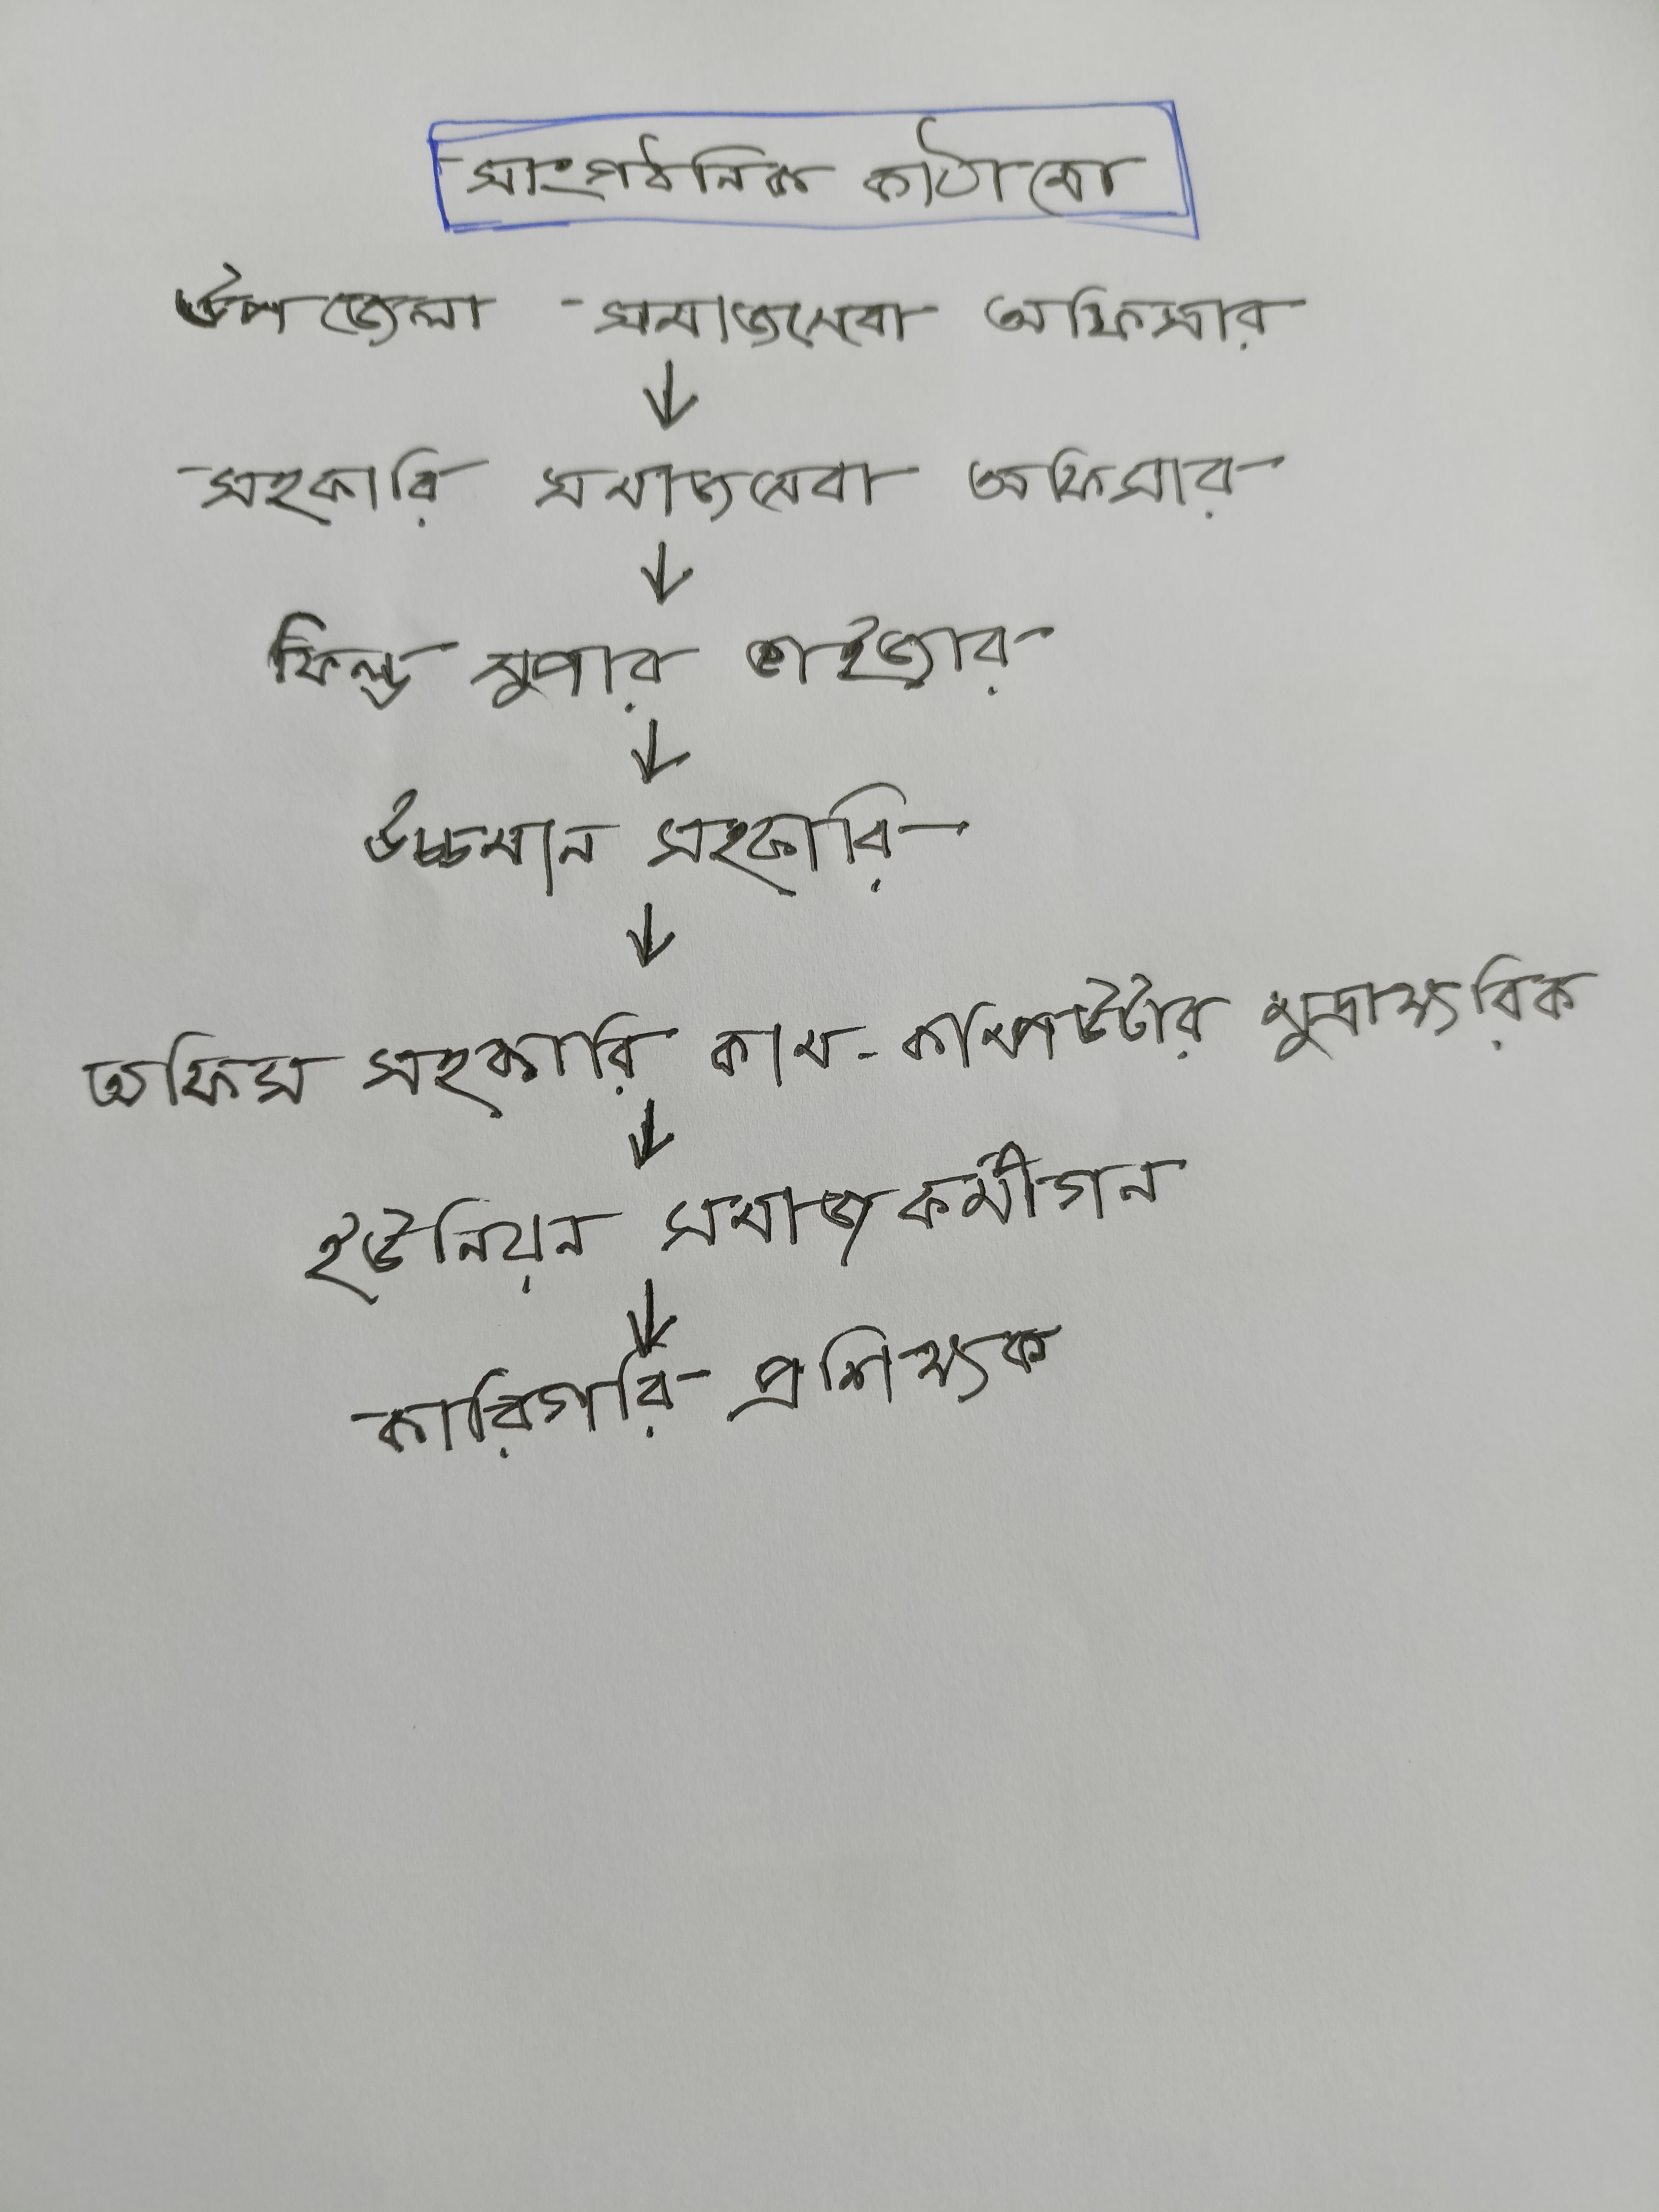 সাংগঠনিক কাঠামো
উপজেলা সমাজসেবা অফিসার
সহকারি সমাজসেবা অফিসার
ফিল্ড সুপার ভাইজার
উচ্চমান সহকারি
অফিস সহকারি কাম-কম্পিউটার মুদ্রাক্ষরিক
ইউনিয়ন সমাজকর্মীগন
কারিগরি প্রশিক্ষক